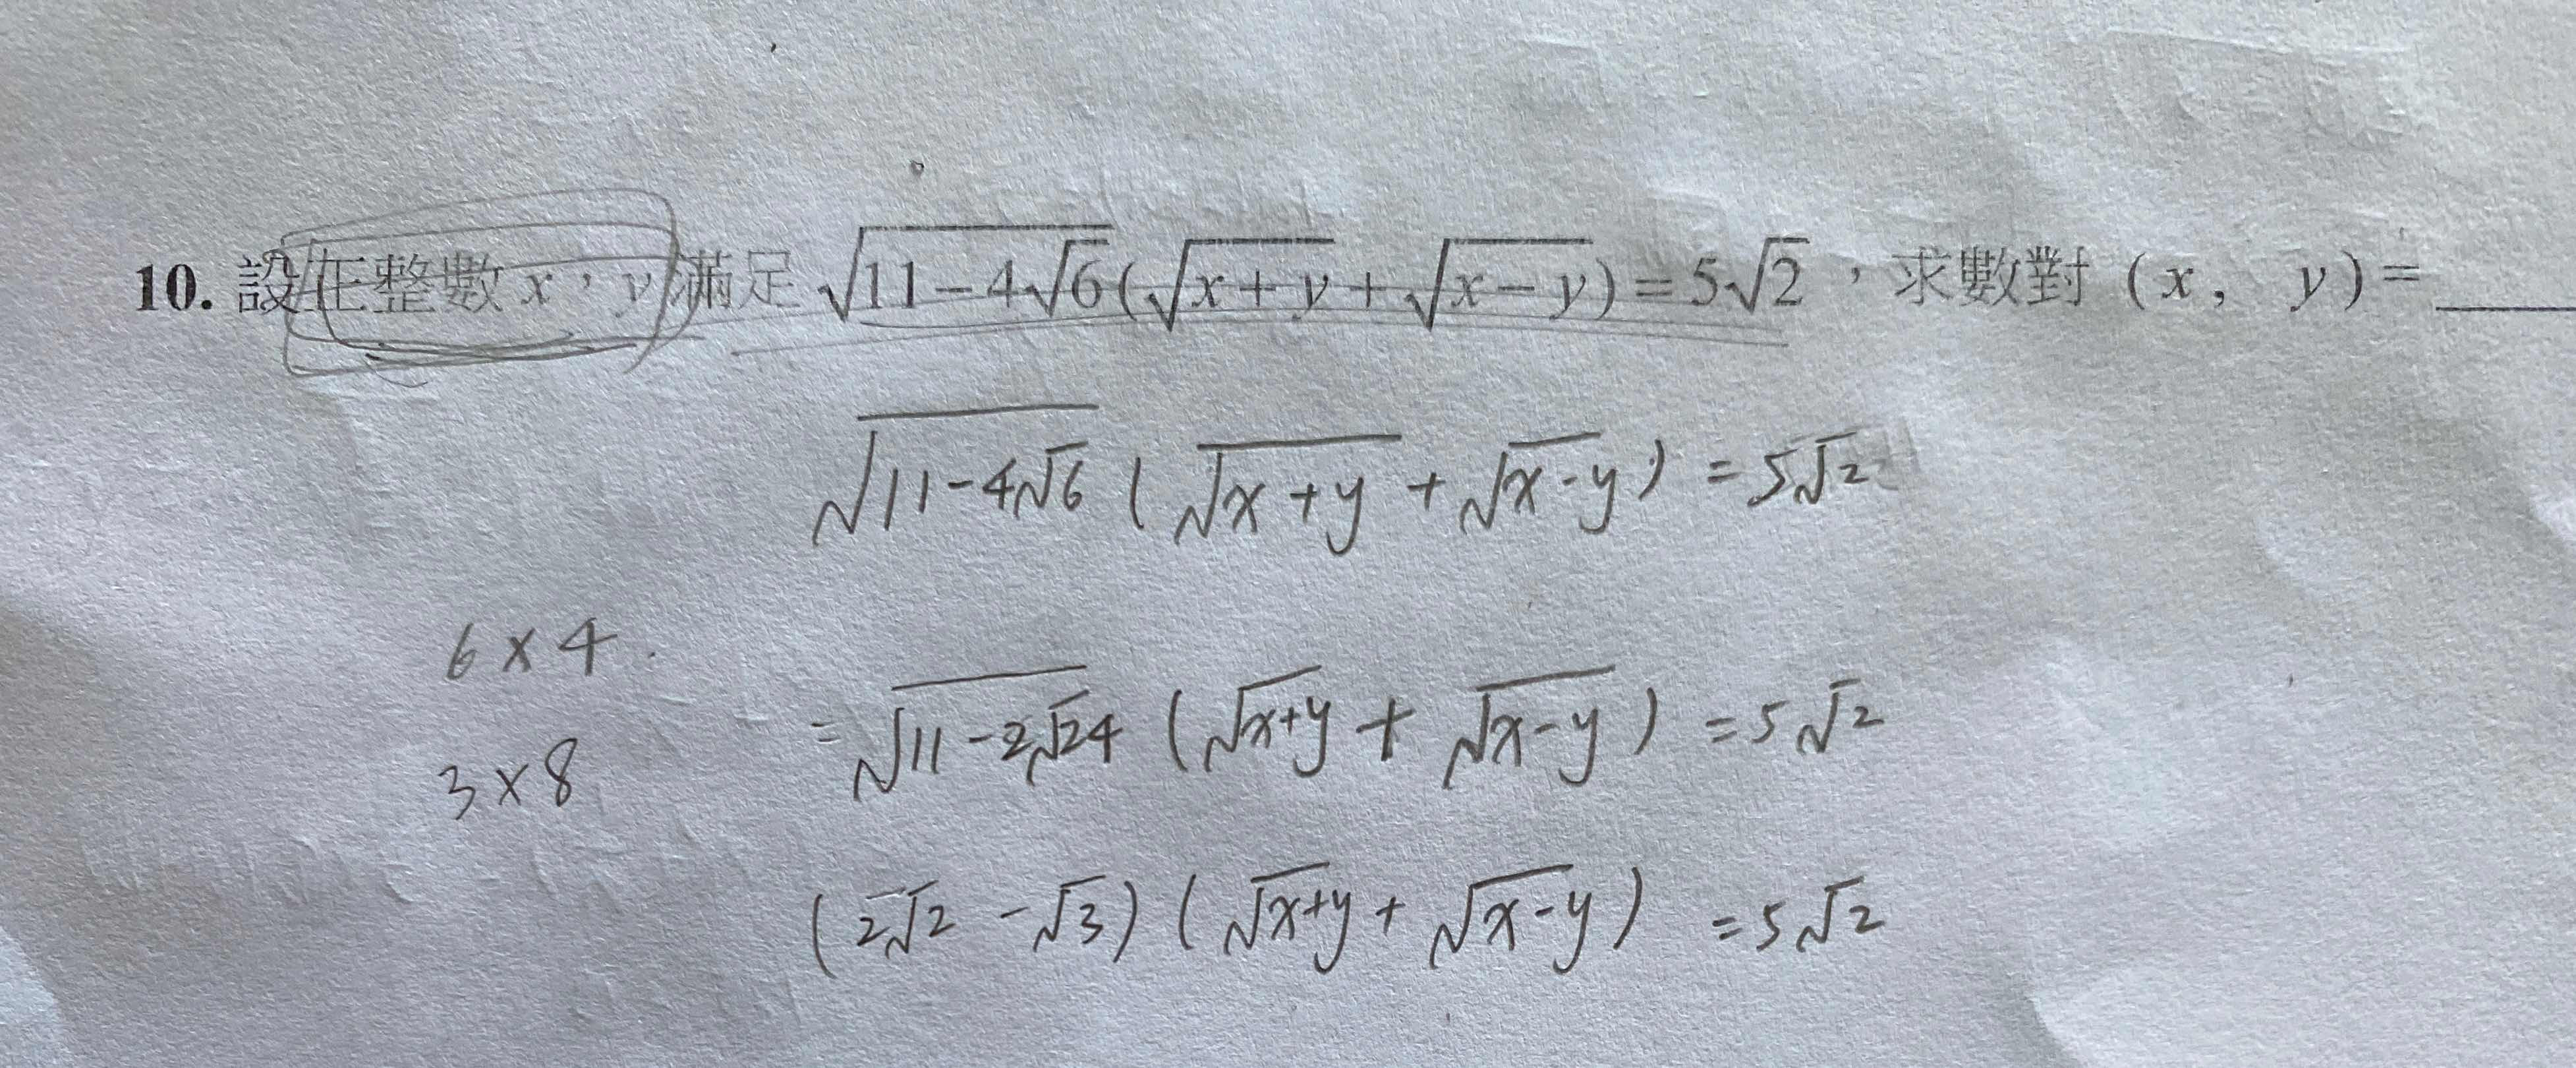 10. 設正整數 x，y 滿足 √(11-4√6)(√(x+y)+√(x-y))=5√2，求數對 (x, y)=____
√(11-4√6) (√(x+y) + √(x-y)) = 5√2
6×4.
= √(11-2√24) (√(x+y) + √(x-y)) = 5√2
3×8
(2√2 - √3) (√(x+y) + √(x-y)) = 5√2